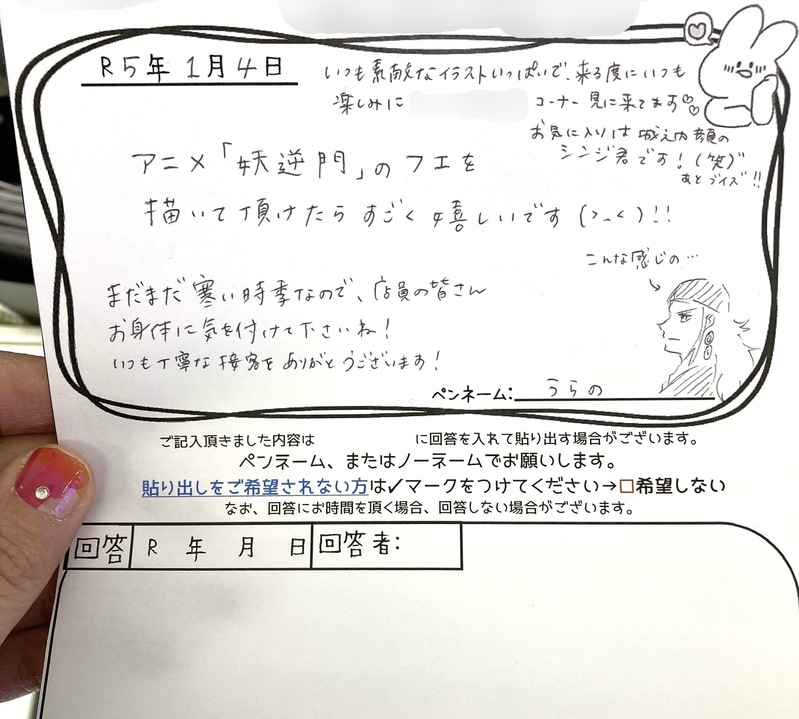 R5年1月4日
いつも素敵なイラストいっぱいで、来る度にいつも
楽しみに コーナー見に来てます♡♡
お気に入りは城之内顔の
シンジ君です！(笑)
あとブイズ!!
アニメ「妖逆門」のフエを
描いて頂けたらすごく嬉しいです(>_<)!!
こんな感じの…
まだまだ寒い時季なので、店員の皆さん
お身体に気を付けて下さいね！
いつも丁寧な接客をありがとうございます！
ペンネーム：うらの
ご記入頂きました内容は に回答を入れて貼り出す場合がございます。
ペンネーム、またはノーネームでお願いします。
貼り出しをご希望されない方は✓マークをつけてください→□希望しない
なお、回答にお時間を頂く場合、回答しない場合がございます。
回答 R 年 月 日 回答者：